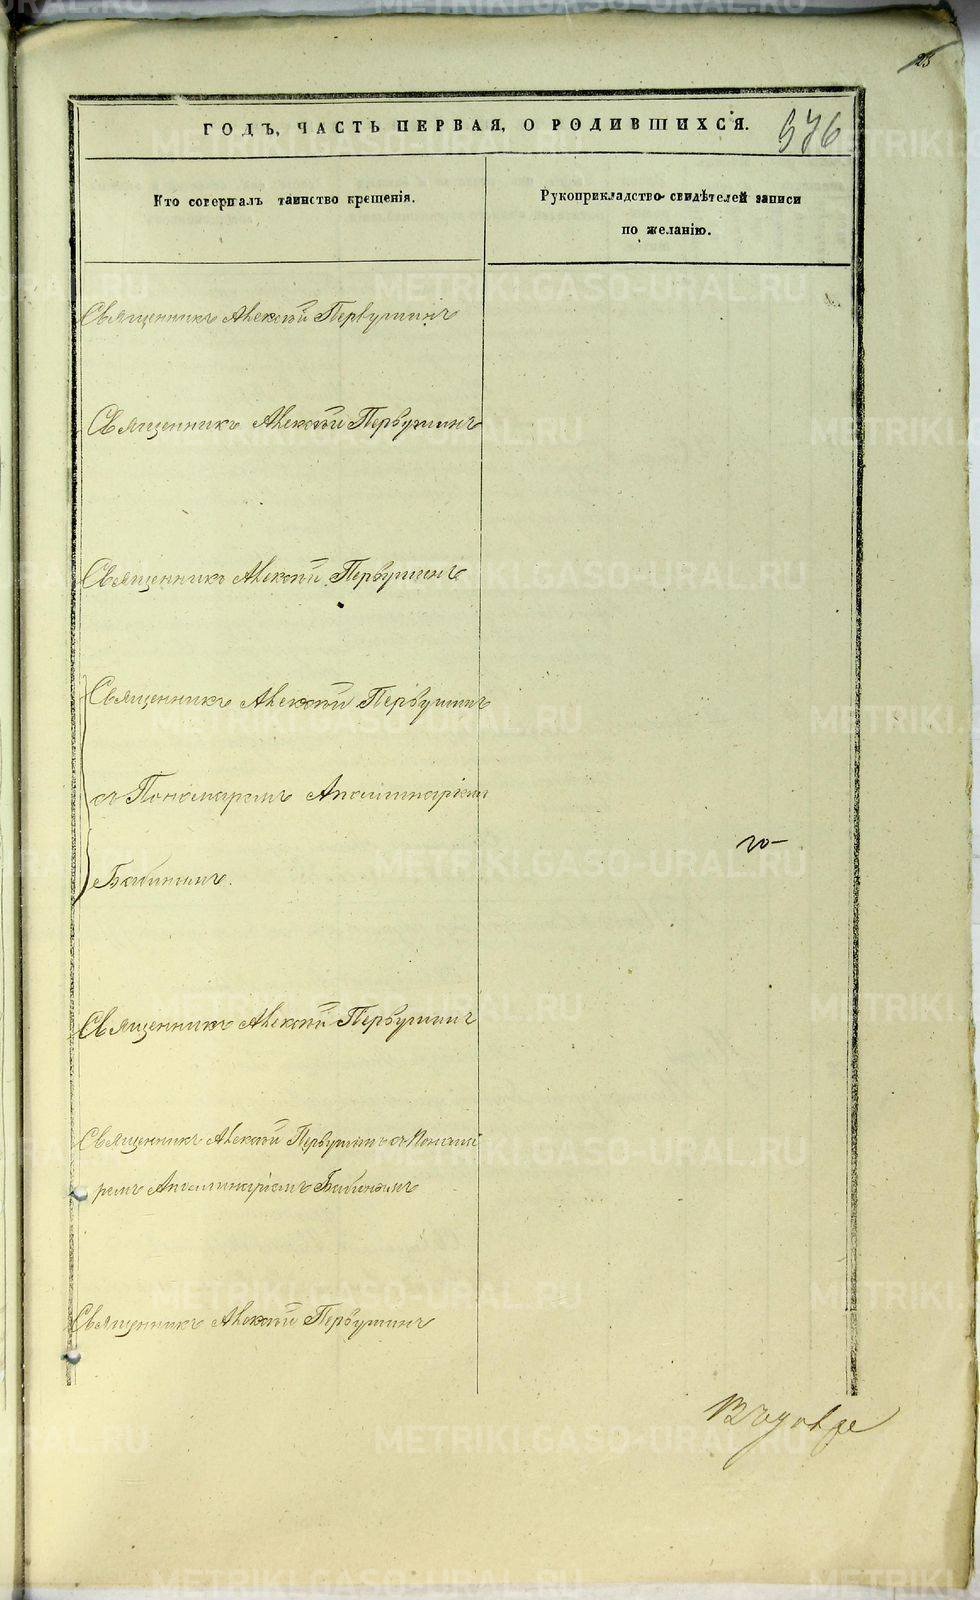 28
ГОДЪ, ЧАСТЬ ПЕРВАЯ, О РОДИВШИХСЯ. 576
Кто совершалъ таинство крещенія.
Рукоприкладство свидѣтелей записи
по желанію.
Священникъ Алексѣй Первушинъ
Священникъ Алексѣй Первушинъ
Священникъ Алексѣй Первушинъ
Священникъ Алексѣй Первушинъ
съ Пономаремъ Аполлинаріем
Бабинымъ.
Священникъ Алексѣй Первушинъ
Священникъ Алексѣй Первушинъ съ Понома
ремъ Аполлинаріемъ Бабинымъ
Священникъ Алексѣй Первушинъ
METRIKI.GASO-URAL.RU